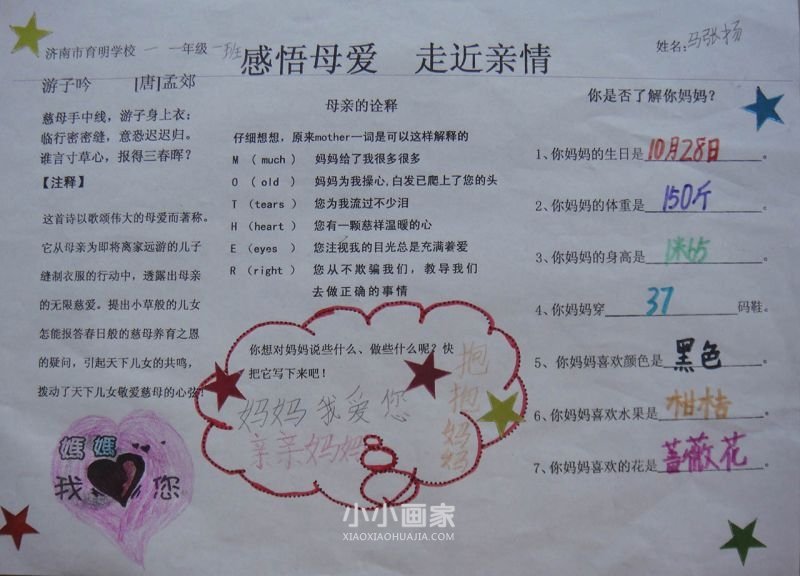 济南市育明学校 一 一年级一班
感悟母爱 走近亲情
姓名:马张扬
游子吟 [唐]孟郊
慈母手中线，游子身上衣；
临行密密缝，意恐迟迟归。
谁言寸草心，报得三春晖？
【注释】
这首诗以歌颂伟大的母爱而著称。
它从母亲为即将离家远游的儿子
缝制衣服的行动中，透露出母亲
的无限慈爱。提出小草般的儿女
怎能报答春日般的慈母养育之恩
的疑问，引起天下儿女的共鸣，
拨动了天下儿女敬爱慈母的心弦!
媽媽
我 您
母亲的诠释
仔细想想，原来mother一词是可以这样解释的
M （much） 妈妈给了我很多很多
O （old） 妈妈为我操心,白发已爬上了您的头
T （tears） 您为我流过不少泪
H （heart） 您有一颗慈祥温暖的心
E （eyes） 您注视我的目光总是充满着爱
R （right） 您从不欺骗我们，教导我们
去做正确的事情
你想对妈妈说些什么、做些什么呢？快
把它写下来吧！
妈妈我爱您
亲亲妈妈
抱抱妈妈
你是否了解你妈妈？
1、你妈妈的生日是10月28日。
2、你妈妈的体重是150斤。
3、你妈妈的身高是1米65。
4、你妈妈穿37码鞋。
5、你妈妈喜欢颜色是黑色。
6、你妈妈喜欢水果是柑桔。
7、你妈妈喜欢的花是蔷薇花。
小小画家
XIAOXIAOHUAJIA.COM